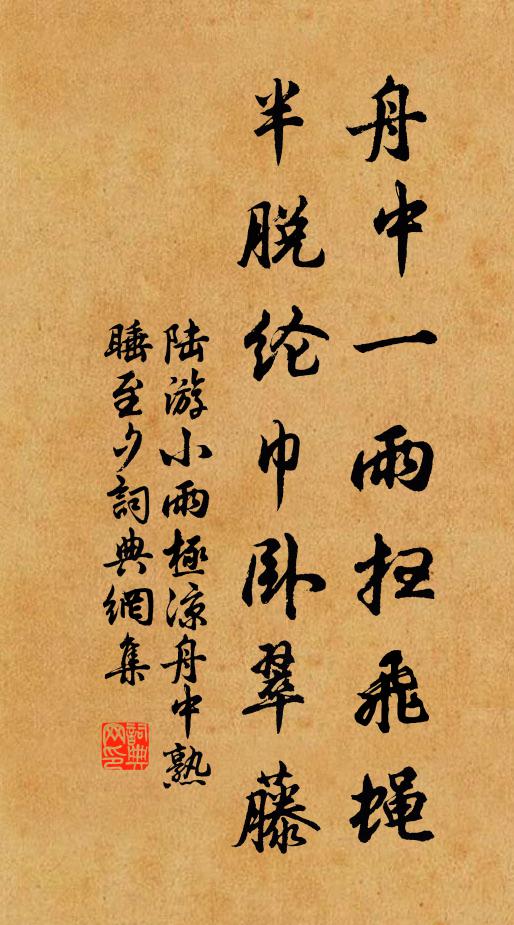 舟中一雨扫飞蝇
半脱纶巾卧翠藤
陆游小雨極凉舟中熟
睡至夕詞典網集
詞典網印